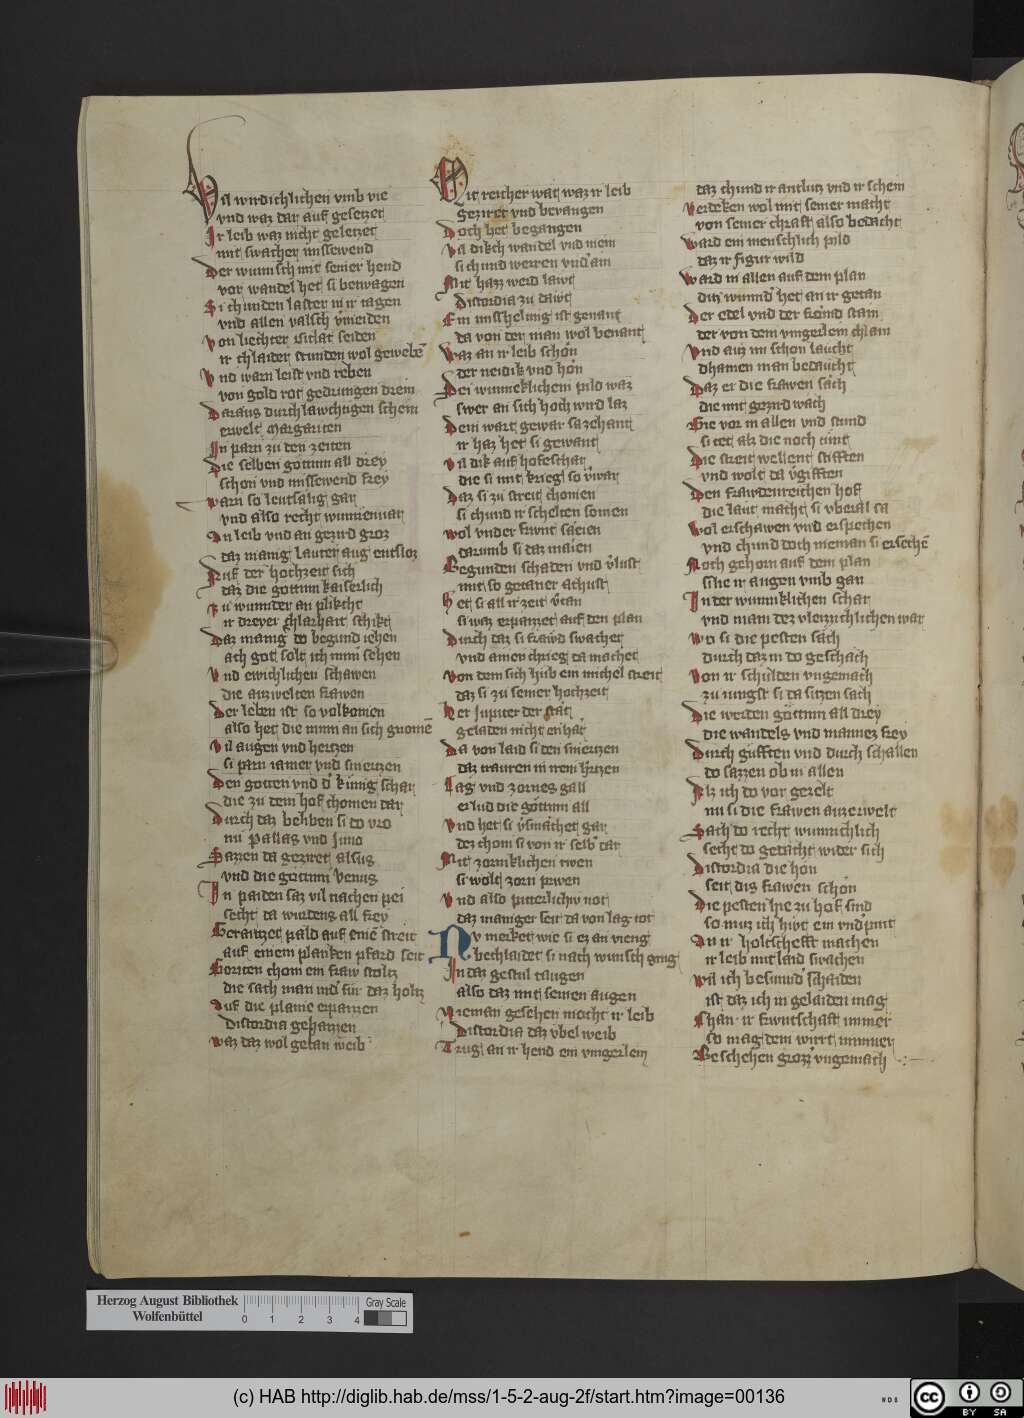 Vil wirdichlichen vmb vie
vnd waz dar auf gesetzet
Ir leib waz nicht geletzet
mit swacher missewend
Der wunsch mit seiner hend
vor wandel het si bewagen
Si chunden laster nir tagen
vnd allen valsch vmeiden
Von liechter siden
ir chlaider stunden wol geweben
Vnd warn leist vnd reben
von gold rot gedrungen drein
Daraus durchlawchtigen schein
erwelt Margariten
In parn zu den zeiten
Die selben gottinn all drey
schon vnd missewend frey
warn so leutsalig gar
vnd also recht wunnenvar
An leib vnd an gezird groz
daz manig lauter aug entsloz
Auf der hochzeit sich
daz die gottinn kaiserlich
Zu wunnder an plikcht
ir dreyer chlarhait schikt
Daz manig do begund iehen
ach got solt ich nimm sehen
Vnd ewichlichen schawen
die auzwelten frawen
Der leben ist so volkomen
also het die minn an sich genomen
Vil augen vnd hertzen
si parn iamer vnd smertzen
Den gotten vnd der kunig schar
die zu dem hof chomen dar
Durch daz beliben si do vro
nu Pallas vnd Juno
Sazzen da geziret alsus
vnd die gottinn Venus
In paiden saz vil nachen pei
secht da wurdens all frey
Gerantzet pald auf einen streit
auf einem planken pfard seit
Geriten chom ein fraw stoltz
die sach man nider für daz holtz
Auf die planie erpaizzen
Discordia gehaizzen
Waz daz wol getan weib
Mit reicher wat waz ir leib
geziret vnd bevangen
Doch het begangen
Vil dikch wandel vnd mein
si chund werren vnd ain
Mit hazz werd lawt
Discordia zu dawt
Ein misshelung ist genant
da von der man wol benant
Waz an ir leib schon
der neidik vnd hon
Bei wunneklichem pild waz
swer an sich hoch wird laz
Dem wart gewar sa zehant
ir haz het si gewant
Vil dik auf hofeschar
die si mit krieg so verwar
Daz si zu streit chomen
si chund ir schelten somen
Wol vnder frewnt saeien
darumb si daz maien
Begunden schaden vnd verlust
mit so getaner achust
Het si all ir zeit vertan
si waz erpaizzet auf den plan
Durch daz si frawd swachet
vnd ainen chrieg da machet
Von dem sich hub ein michel streit
daz si zu seiner hochzeit
Her Jupiter der stat
geladen nicht enhat
Da von laid si den smertzen
daz trauren in irem hertzen
Lag vnd zornes gall
er lud die gottinn all
Vnd het si versmachet gar
dez chom si von ir selb dar
Mit zorniklichen riwen
si wolt zorn priwen
Vnd also pitterlichiv not
daz maniger seit da von lag tot
Nv merket wie si ez an vieng
bechlaidet si nach wunsch gieng
In daz gestul taugen
also daz mit seinen augen
Nieman gesehen mocht ir leib
Discordia daz vbel weib
Trug an ir hend ein vingerlein
daz chund ir antlutz vnd ir schein
Verdeken wol mit seiner macht
von seiner chraft also bedacht
Ward ein menschlich pild
daz ir figur wild
Ward in allen auf dem plan
div wunnder het an ir getan
Der edel vnd der fromd stain
der von dem vingerlein chlain
Vnd auz im schon laucht
dhainen man bedaucht
Daz er die frawen sach
die mit gezird wach
Gie vor in allen vnd stund
si tet alz die noch tunt
Die streit wellent stifften
vnd wolt da vergifften
Den frawdenreichen hof
die laut macht si vberal sa
Wol erschawen vnd erspechen
vnd chund doch nieman si ersechen
Noch gehorn auf dem plan
sihe ir augen vmb gan
In der wunniklichen schar
vnd nam dez vleizzichlichen war
Wo si die pesten sach
durch daz in do geschach
Von ir schulden vngemach
zu iungst si da sitzen sach
Die werden göttinn all drey
die wandels vnd mannez frey
Durch gufften vnd durch schallen
do sazzen ob in allen
Alz ich do vor gezelt
nu si die frawen auzerwelt
Sach do recht wunnichlich
secht do gedacht wider sich
Discordia die hon
seit dis frawen schön
Die pesten hie zu hof sind
so muz ich hivt ein vnderpint
An ir holtschefft machen
ir leib mit laid swachen
Wil ich besunder schaiden
ist daz ich in gelaiden mag
Chan ir frewntschaft immer
so mag dem wirt nimmer
Geschehen grozz vngemach
Herzog August Bibliothek
Wolfenbüttel
0 1 2 3 4
Gray Scale
(c) HAB http://diglib.hab.de/mss/1-5-2-aug-2f/start.htm?image=00136
WDB
cc
BY SA